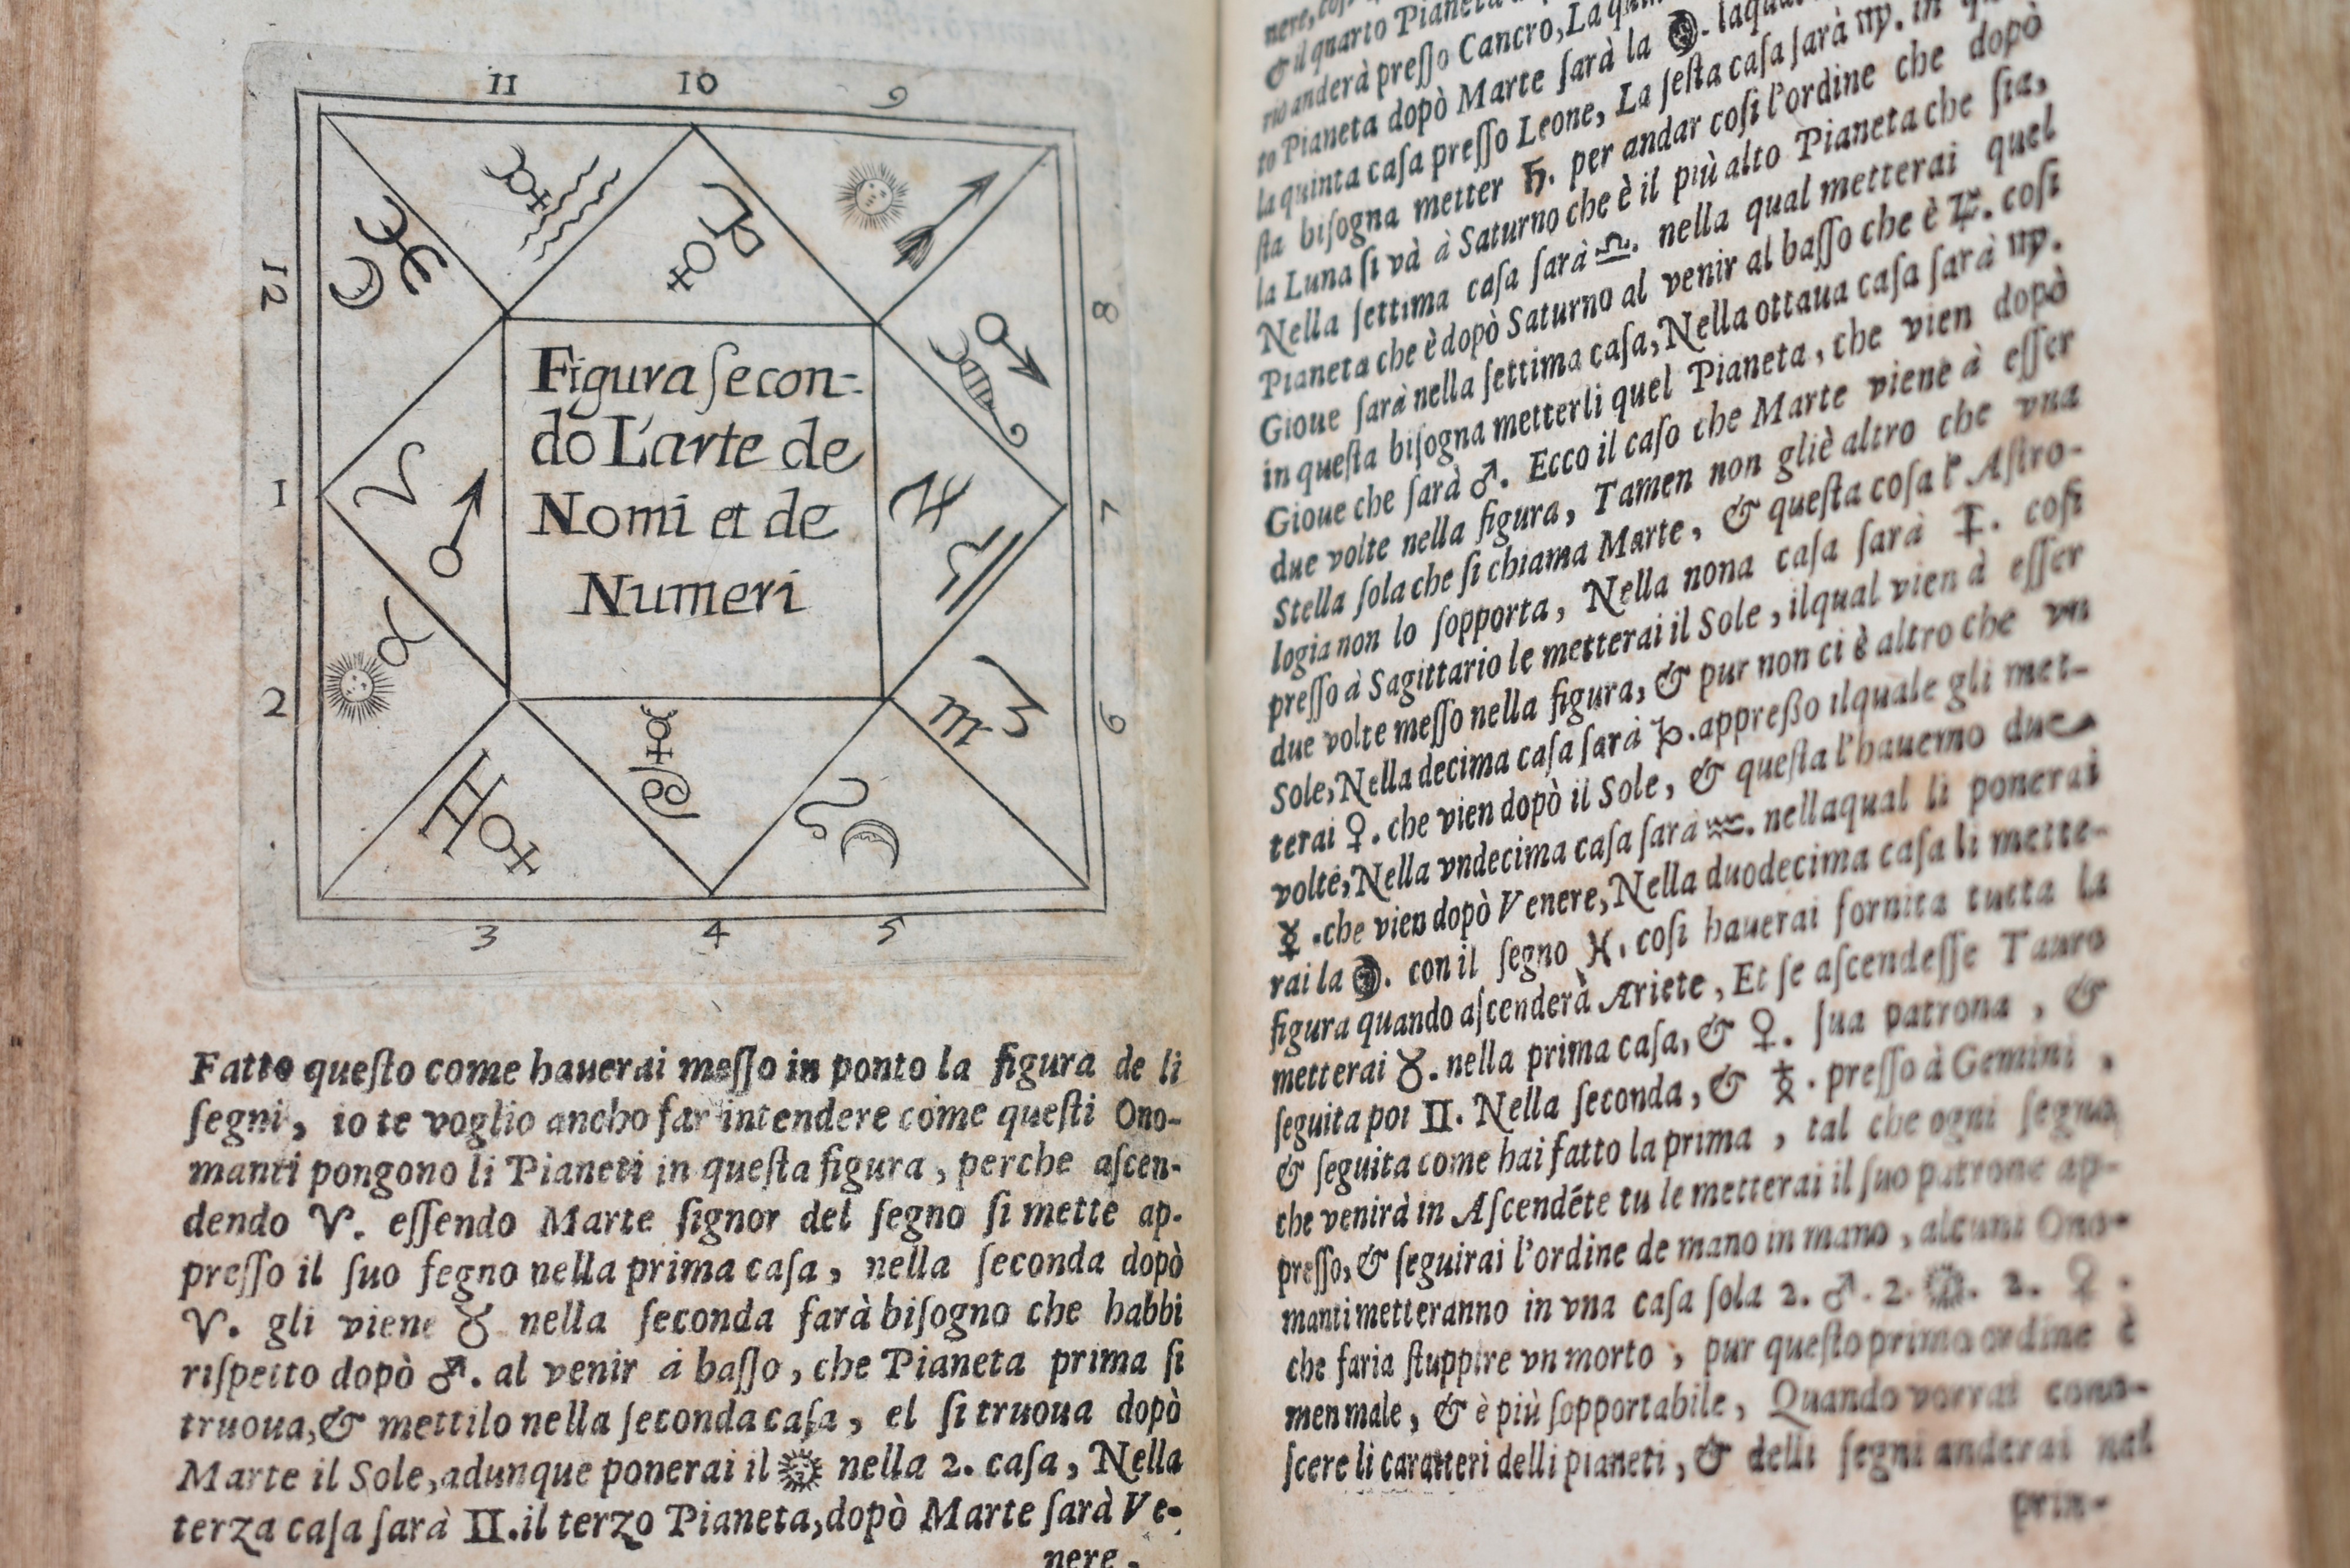 11 10 9
12
8
1
7
2
6
3 4 5
Figura ſecon-
dō L'arte de
Nomi et de
Numeri
Fatto queſto come hauerai meſſo in ponto la figura de li
ſegni, io te voglio ancho far intendere come queſti Ono-
manti pongono li Pianeti in queſta figura, perche aſcen-
dendo ♈. eſſendo Marte ſignor del ſegno ſi mette ap-
preſſo il ſuo ſegno nella prima caſa, nella ſeconda dopò
♈. gli viene ♉ nella ſeconda farà biſogno che habbi
riſpetto dopò ♂. al venir à baſſo, che Pianeta prima ſi
truoua, & mettilo nella ſeconda caſa, el ſi truoua dopò
Marte il Sole, adunque ponerai il ☉ nella 2. caſa, Nella
terza caſa ſarà II. il terzo Pianeta, dopò Marte ſarà Ve-
nere,
& il quarto Pianeta
rio anderà preſſo Cancro, La
to Pianeta dopò Marte ſarà la ☽. laqual
la quinta caſa preſſo Leone, La ſeſta caſa ſarà ♍. in
ſta biſogna metter ♄. per andar coſi l'ordine che dopò
la Luna ſi và à Saturno che è il più alto Pianeta che ſia,
Nella ſettima caſa ſarà ♎. nella qual metterai quel
Pianeta che è dopò Saturno al venir al baſſo che è ♃. coſi
Gioue ſarà nella ſettima caſa, Nella ottaua caſa ſarà ♍.
in queſta biſogna metterli quel Pianeta, che vien dopò
Gioue che ſarà ♂. Ecco il caſo che Marte viene à eſſer
due volte nella figura, Tamen non gliè altro che vna
Stella ſola che ſi chiama Marte, & queſta coſa l'Aſtro-
logia non lo ſopporta, Nella nona caſa ſarà ♐. coſi
preſſo à Sagittario le metterai il Sole, ilqual vien à eſſer
due volte meſſo nella figura, & pur non ci è altro che vn
Sole, Nella decima caſa ſarà ♑. appreßo ilquale gli met-
terai ♀. che vien dopò il Sole, & queſta l'hauemo due
volte, Nella vndecima caſa ſarà ♒. nellaqual li ponerai
☿. che vien dopò Venere, Nella duodecima caſa li mette-
rai la ☽. con il ſegno ♓. coſi hauerai fornita tutta la
figura quando aſcenderà Ariete, Et ſe aſcendeſſe Tauro
metterai ♉. nella prima caſa, & ♀. ſua patrona, &
ſeguita poi II. Nella ſeconda, & ☿. preſſo à Gemini,
& ſeguita come hai fatto la prima, tal che ogni ſegno
che venirà in Aſcendēte tu le metterai il ſuo patrone ap-
preſſo, & ſeguirai l'ordine de mano in mano, alcuni Ono-
manti metteranno in vna caſa ſola 2. ♂. 2. ☉. 2. ♀.
che faria ſtuppire vn morto, pur queſto primo ordine è
men male, & è più ſopportabile, Quando vorrai cono-
ſcere li caratteri delli pianeti, & delli ſegni anderai nel
prin-